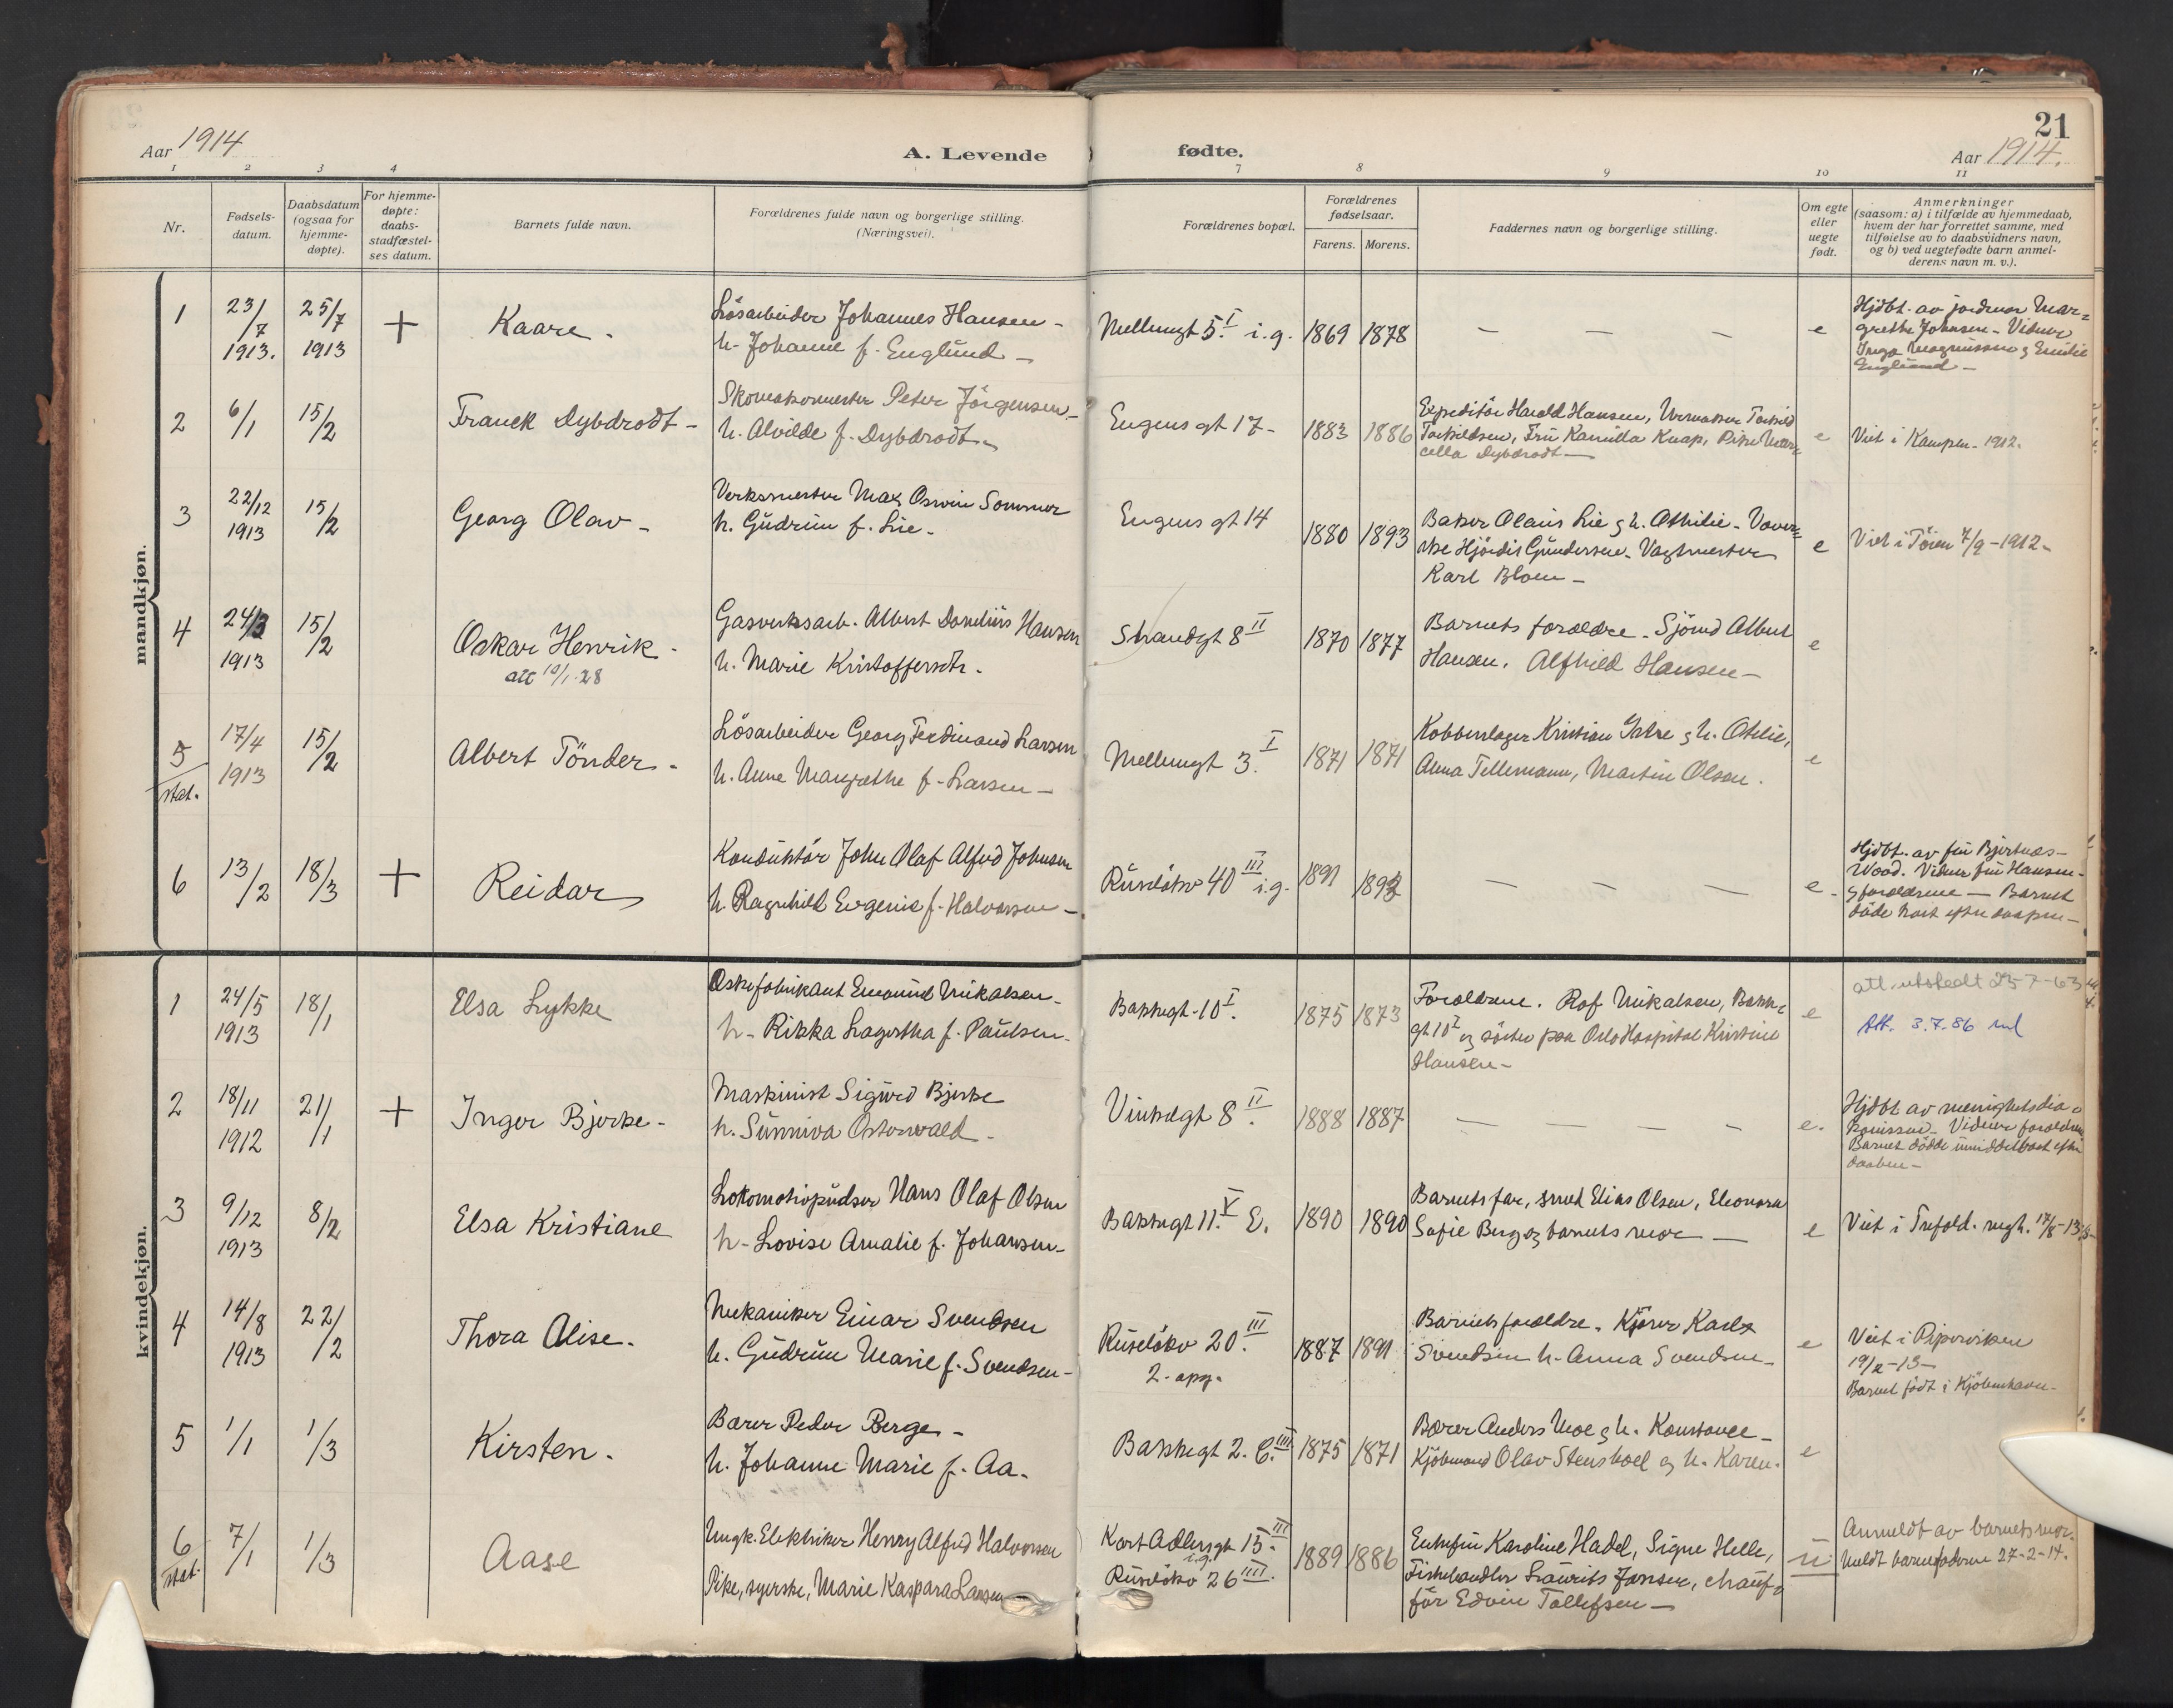 21
Aar 1914
A. Levende
fødte.
Aar 1914.
1 2 3 4 7 8 9 10 11
Nr.
Fødsels-
datum.
Daabsdatum
(ogsaa for
hjemme-
døpte).
For hjemme-
døpte:
daabs-
stadfæstel-
ses datum.
Barnets fulde navn.
Forældrenes fulde navn og borgerlige stilling.
(Næringsvei).
Forældrenes bopæl.
Forældrenes
fødselsaar.
Farens. Morens.
Faddernes navn og borgerlige stilling.
Om egte
eller
uegte
født.
Anmerkninger
(saasom: a) i tilfælde av hjemmedaab,
hvem der har forrettet samme, med
tilføielse av to daabsvidners navn,
og b) ved uegtefødte barn anmel-
derens navn m. v.).
mandkjøn.
1
23/7
1913.
25/7
1913
+
Kaare.
Løsarbeider Johannes Hansen -
h. Johanne f. Englund -
Mellemgt 5.I i.g.
1869 1878
— — —
e
Hjdbt. av jordmor Mar=
grethe Johnsen - Vidner
Inga Magnussen og Emilie
Englund -
2
6/1
15/2
Franck Dybdrodt -
Skomakermester Peter Jörgensen -
h. Alvilde f. Dybdrodt -
Eugens gt 17 -
1883 1886
Expeditör Harald Hansen, Urmaker
Fru Kamilla Knap, Pike Mar=
cella Dybdrodt -
e
Viet i Kampen - 1912.
3
22/12
1913
15/2
Georg Olav -
Verksmester Max Oswin Sommer
h. Gudrun f. Lie -
Eugens gt 14
1880 1893
Baker Olaus Lie og h. Othilie - Vaver=
ske Hjördis Gundersen - Vagtmester
Karl Bloen -
e
Viet i Töien 7/9 - 1912 -
4
24/3
1913
15/2
Oskar Henrik -
att 10/1.28
Gasverksarb. Albert Hansen
h. Marie Kristoffersdtr.
Strandgt 8 II
1870 1877
Barnets forældre. Sjömd Albert
Hansen. Alfhild Hansen -
e
5
stat.
17/4
1913
15/2
Albert Tönder -
Løsarbeider Georg Ferdinand Larsen
h. Anne Margrethe f. Larsen -
Mellemgt 3.I
1871 1871
Kobberslager Kristian og h. Othilie,
Anna Tellemann, Martin Olsen.
e
6
13/2
18/3
+
Reidar
Konduktör John Olaf Alfred Johnsen
h. Ragnhild Evgenie f. Halvorsen -
Ruselökv 40 III i.g.
1891 1892
— — —
e -
Hjdbt. av frk Bjertnæs -
Wood. Vidner frk Hansen -
og forældrene - Barnet
döde kort efter daapen -
kvindekjøn.
1
24/5
1913
18/1
Elsa Lykke
Eskefabrikant Emanuel Mikalsen -
h - Rikka Lagertha f. Paulsen -
Bakkegt - 10 I.
1875 1873
Forældrene. Rof Mikalsen, Bakke
gt 10 I og söster paa Oslo Hospital Kristine
Hansen -
e
att. utstedt 25-7-63
Att. 3.7.86
2
18/11
1912
21/1
+
Inger Bjerke -
Maskinist Sigurd Bjerke
h. Sunniva Osterwald -
Vinkelgt 8 II.
1888 1887
— — — —
e.
Hjdbt av menighetsdia=
konissen - Vidner forældrene
Barnet dödde umiddelbart efter
daaben -
3
9/12
1913
8/2
Elsa Kristiane
Lokomotivpudser Hans Olaf Olsen
h - Lovise Amalie f. Johansen -
Bakkegt 11.V E.
1890 1890
Barnets far, smed Elias Olsen, Eleonora
Sofie Berg og barnets mor -
e
Viet i Trefold. mgh. 17/8-13
4
14/8
1913
22/2
Thora Alise.
Mekaniker Einar Svendsen
h. Gudrun Marie f. Svendsen -
Ruselökv 20.III
2. opg.
1887 1891
Barnets forældre. Kjörer Karl
Svendsen h. Anna Svendsen -
e
Viet i Pipervíken
19/2 - 13 -
Barnet födt i Kjöbenhavn.
5
1/1
1/3
Kirsten.
Bærer Peder Berge -
h. Johanne Marie f. Aa.
Bakkegt 2. C.III
1875 1871
Bærer Anders Moe og h. Konstance -
Kjöbmand Olav Stenshoel og h. Karen.
e
6
stat.
7/1
1/3
Aase
Ungk. Elektriker Henry Alfred Halvorsen
Pike, syerske, Marie Kaspara Larsen
Kort Adlersgt 15.III
i.g.
Ruselökv 26 IIII.
1889 1886
Enkefru Karoline Hadel, Signe Helle,
Fiskehandler Laurits Jansen, chauf=
för Edvin Tollefsen -
u
Anmeldt av barnets mor.
Meldt barnefaderen 27-2-14.